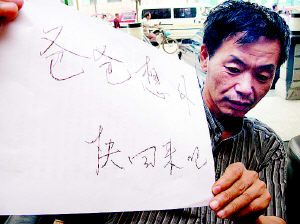 爸爸想你
快回来吧